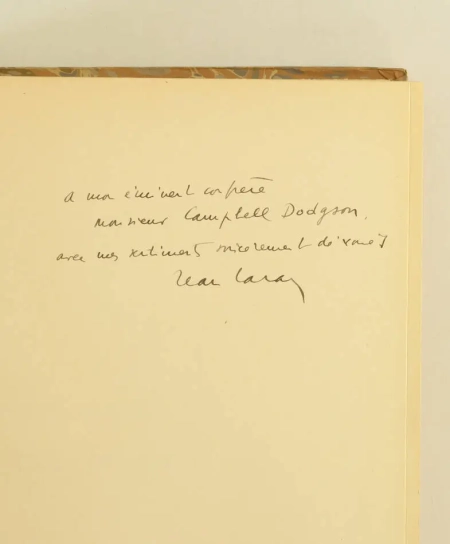 a mon éminent confrère
monsieur Campbell Dodgson,
avec mes sentiments sincèrement dévoués
Jean Laran